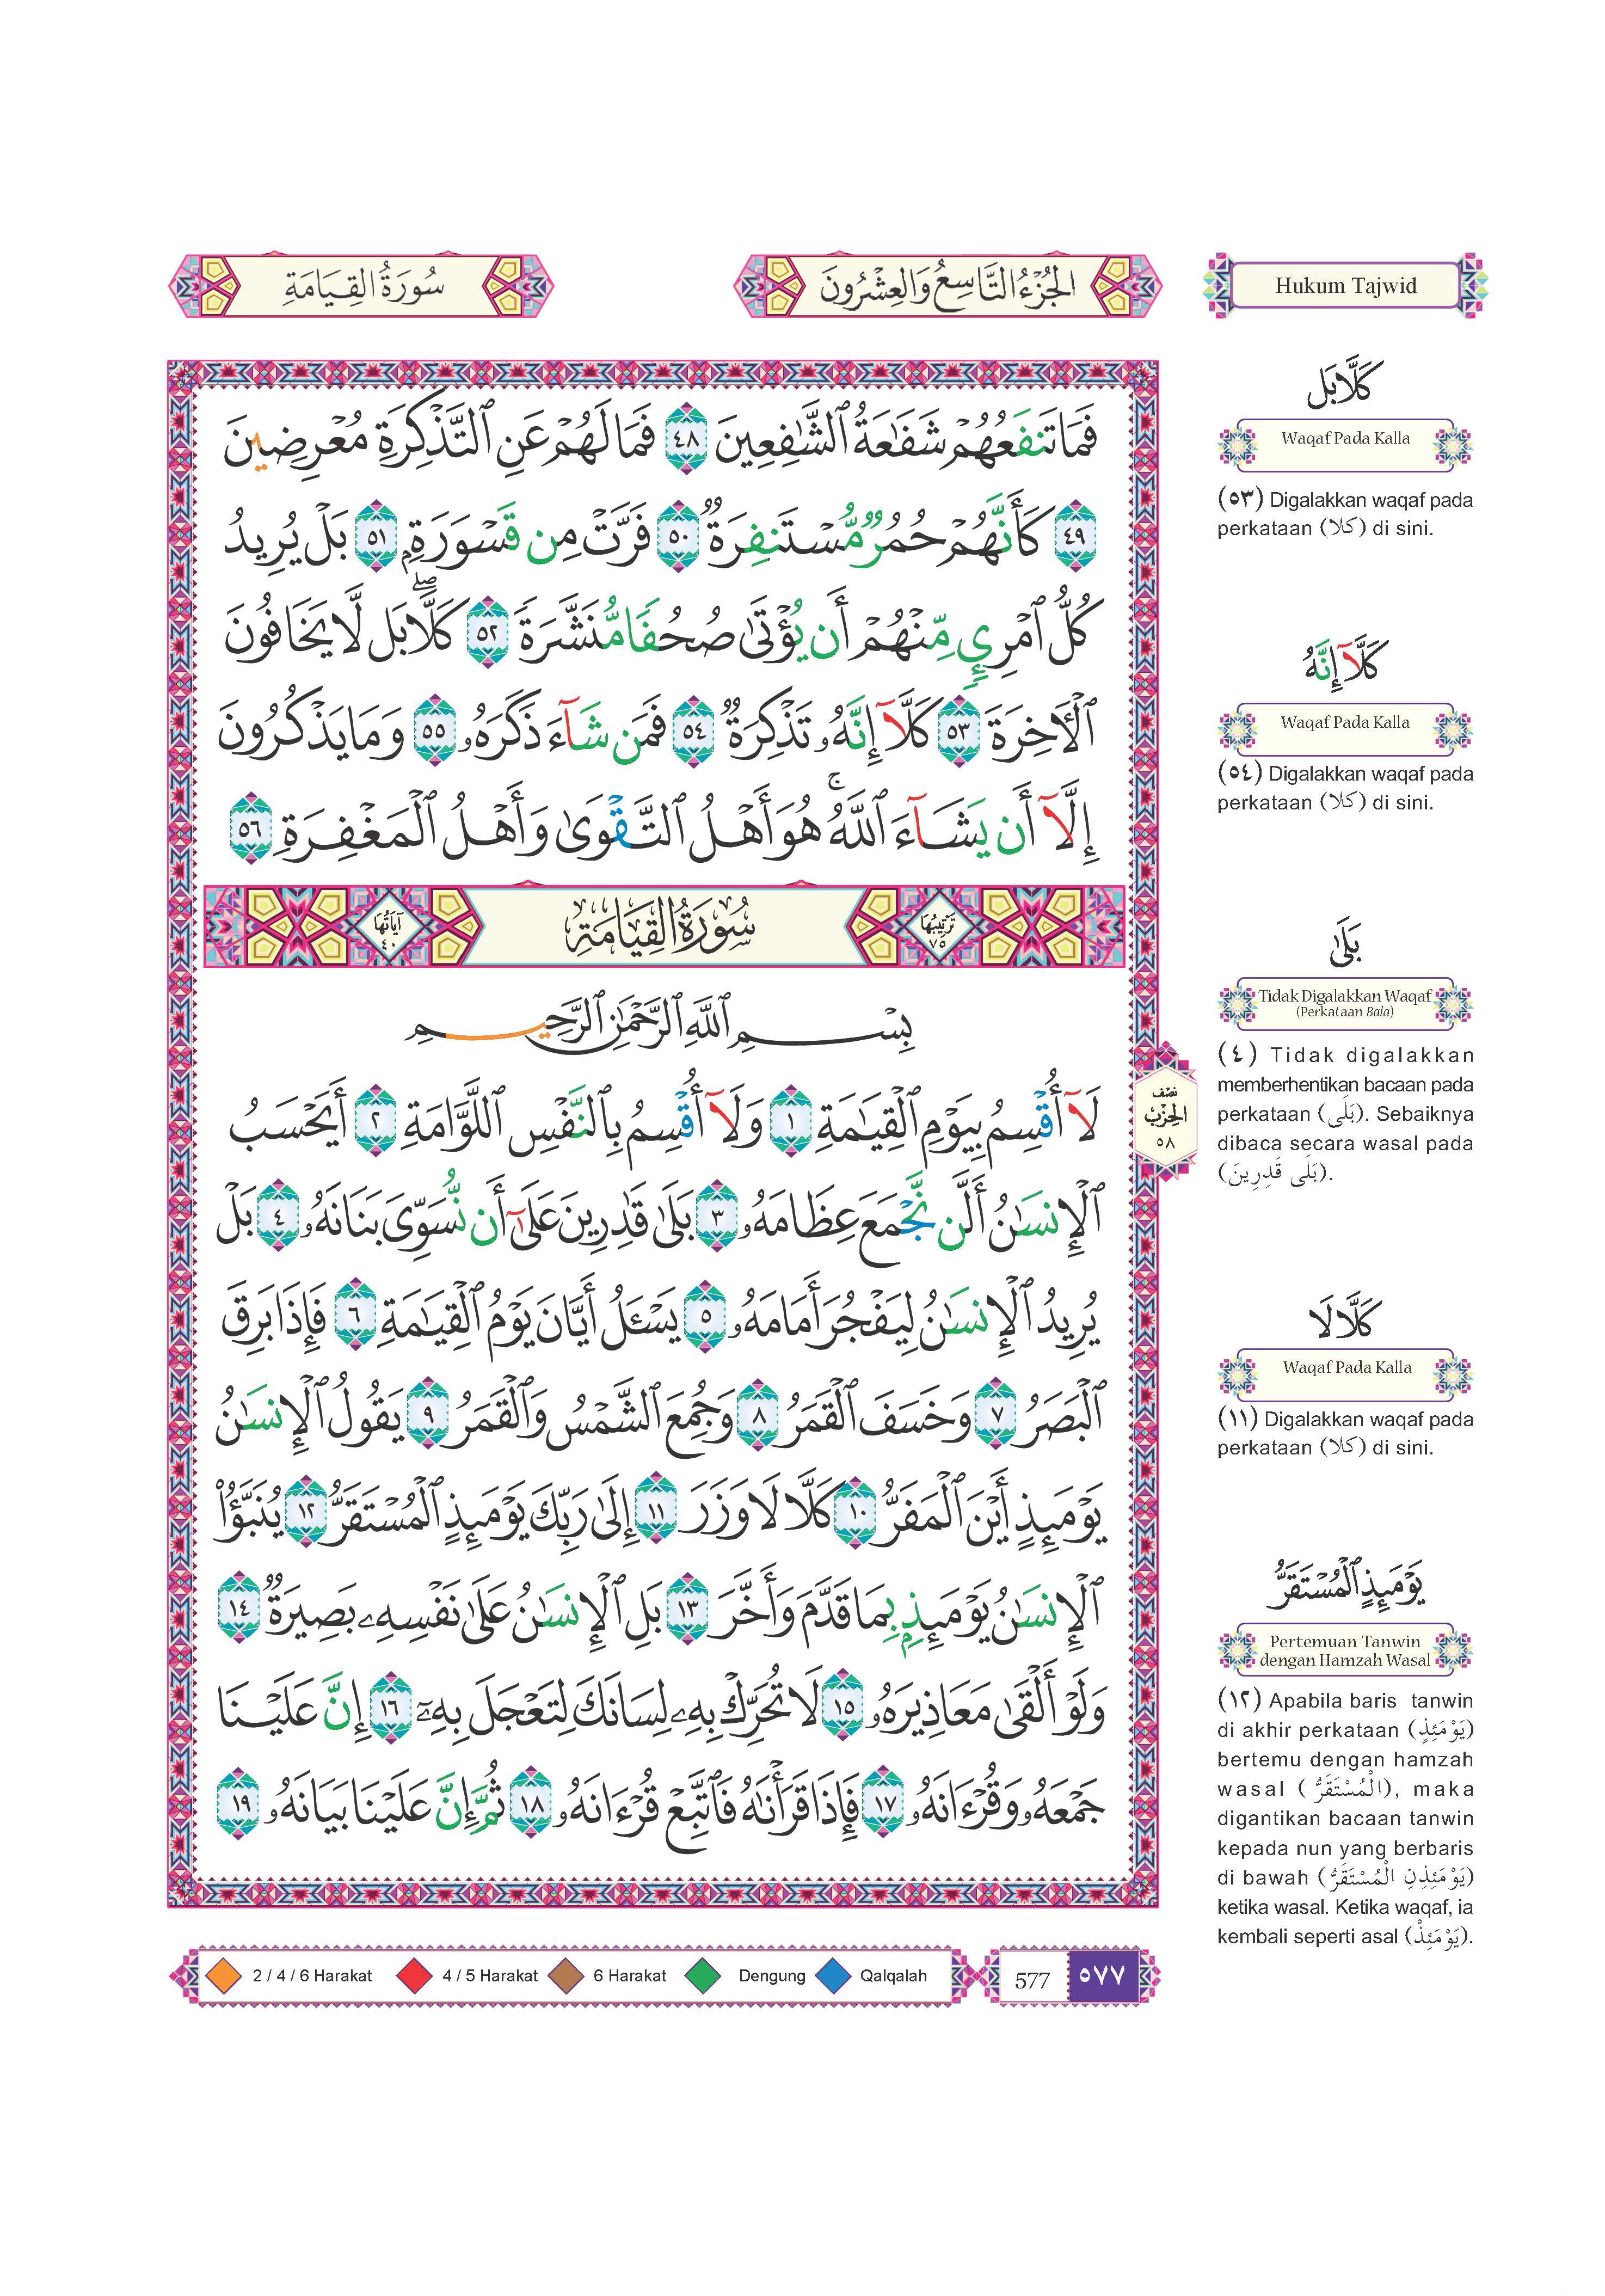 سُورَةُ الْقِيَامَةِ
الجُزْءُ التَّاسِعُ وَالعِشْرُونَ
Hukum Tajwid
فَمَا تَنفَعُهُمْ شَفَٰعَةُ ٱلشَّٰفِعِينَ ٤٨ فَمَا لَهُمْ عَنِ ٱلتَّذْكِرَةِ مُعْرِضِينَ
٤٩ كَأَنَّهُمْ حُمُرٌ مُّسْتَنفِرَةٌ ٥٠ فَرَّتْ مِن قَسْوَرَةٍۭ ٥١ بَلْ يُرِيدُ
كُلُّ ٱمْرِئٍ مِّنْهُمْ أَن يُؤْتَىٰ صُحُفًا مُّنَشَّرَةً ٥٢ كَلَّا ۖ بَل لَّا يَخَافُونَ
ٱلْأَخِرَةَ ٥٣ كَلَّآ إِنَّهُۥ تَذْكِرَةٌ ٥٤ فَمَن شَآءَ ذَكَرَهُۥ ٥٥ وَمَا يَذْكُرُونَ
إِلَّآ أَن يَشَآءَ ٱللَّهُ ۚ هُوَ أَهْلُ ٱلتَّقْوَىٰ وَأَهْلُ ٱلْمَغْفِرَةِ ٥٦
تَرْتِيبُهَا ٧٥ سُورَةُ الْقِيَامَةِ آيَاتُهَا ٤٠
بِسْمِ ٱللَّهِ ٱلرَّحْمَٰنِ ٱلرَّحِيمِ
لَآ أُقْسِمُ بِيَوْمِ ٱلْقِيَٰمَةِ ١ وَلَآ أُقْسِمُ بِٱلنَّفْسِ ٱللَّوَّامَةِ ٢ أَيَحْسَبُ
ٱلْإِنسَٰنُ أَلَّن نَّجْمَعَ عِظَامَهُۥ ٣ بَلَىٰ قَٰدِرِينَ عَلَىٰٓ أَن نُّسَوِّىَ بَنَانَهُۥ ٤ بَلْ
يُرِيدُ ٱلْإِنسَٰنُ لِيَفْجُرَ أَمَامَهُۥ ٥ يَسْـَٔلُ أَيَّانَ يَوْمُ ٱلْقِيَٰمَةِ ٦ فَإِذَا بَرِقَ
ٱلْبَصَرُ ٧ وَخَسَفَ ٱلْقَمَرُ ٨ وَجُمِعَ ٱلشَّمْسُ وَٱلْقَمَرُ ٩ يَقُولُ ٱلْإِنسَٰنُ
يَوْمَئِذٍ أَيْنَ ٱلْمَفَرُّ ١٠ كَلَّا لَا وَزَرَ ١١ إِلَىٰ رَبِّكَ يَوْمَئِذٍ ٱلْمُسْتَقَرُّ ١٢ يُنَبَّؤُا۟
ٱلْإِنسَٰنُ يَوْمَئِذٍۭ بِمَا قَدَّمَ وَأَخَّرَ ١٣ بَلِ ٱلْإِنسَٰنُ عَلَىٰ نَفْسِهِۦ بَصِيرَةٌ ١٤
وَلَوْ أَلْقَىٰ مَعَاذِيرَهُۥ ١٥ لَا تُحَرِّكْ بِهِۦ لِسَانَكَ لِتَعْجَلَ بِهِۦٓ ١٦ إِنَّ عَلَيْنَا
جَمْعَهُۥ وَقُرْءَانَهُۥ ١٧ فَإِذَا قَرَأْنَٰهُ فَٱتَّبِعْ قُرْءَانَهُۥ ١٨ ثُمَّ إِنَّ عَلَيْنَا بَيَانَهُۥ ١٩
نصف
الحزب
٥٨
كَلَّا بَل
Waqaf Pada Kalla
(٥٣) Digalakkan waqaf pada
perkataan (كلا) di sini.
كَلَّآ إِنَّهُ
Waqaf Pada Kalla
(٥٤) Digalakkan waqaf pada
perkataan (كلا) di sini.
بَلَىٰ
Tidak Digalakkan Waqaf
(Perkataan Bala)
(٤) Tidak digalakkan
memberhentikan bacaan pada
perkataan (بَلَى). Sebaiknya
dibaca secara wasal pada
(بَلَى قَدِرِينَ).
كَلَّا لَا
Waqaf Pada Kalla
(١١) Digalakkan waqaf pada
perkataan (كلا) di sini.
يَوْمَئِذٍ ٱلْمُسْتَقَرُّ
Pertemuan Tanwin
dengan Hamzah Wasal
(١٢) Apabila baris tanwin
di akhir perkataan (يَوْمَئِذٍ)
bertemu dengan hamzah
wasal (الْمُسْتَقَرُّ), maka
digantikan bacaan tanwin
kepada nun yang berbaris
di bawah (يَوْمَئِذِنِ الْمُسْتَقَرُّ)
ketika wasal. Ketika waqaf, ia
kembali seperti asal (يَوْمَئِذْ).
2 / 4 / 6 Harakat 4 / 5 Harakat 6 Harakat Dengung Qalqalah 577 ٥٧٧